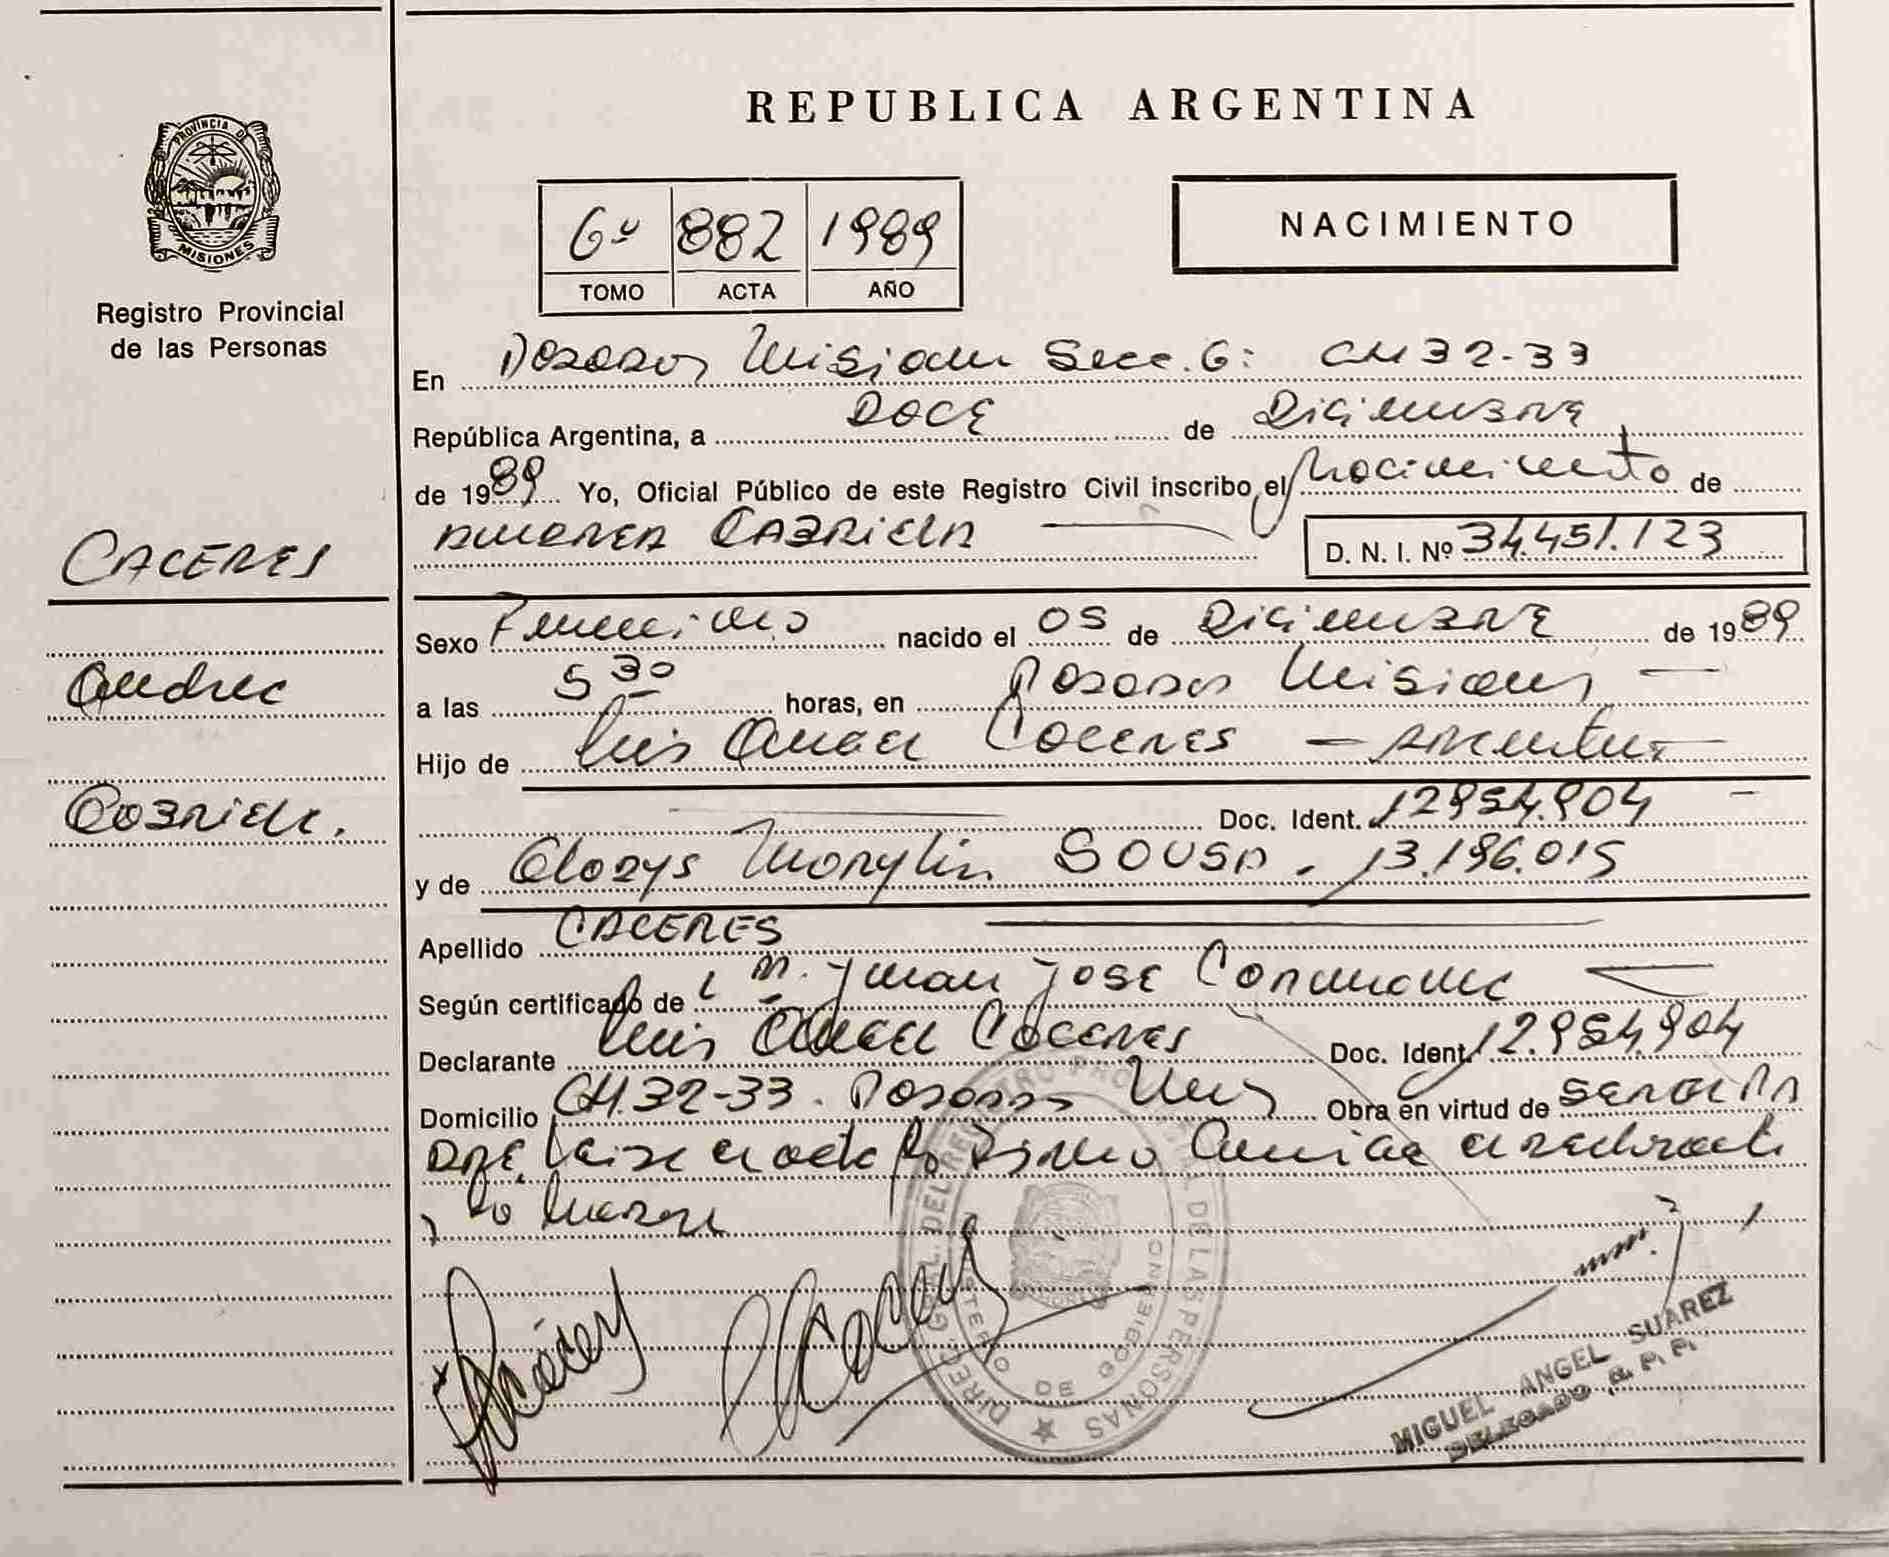 PROVINCIA DE
MISIONES
Registro Provincial
de las Personas
CACERES
Andrea
Gabriela.
REPUBLICA ARGENTINA
6º 882 1989
TOMO ACTA AÑO
NACIMIENTO
En Posadas Misiones Secc. 6: CH 32-33
República Argentina, a DOCE de Diciembre
de 1989 Yo, Oficial Público de este Registro Civil inscribo el Nacimiento de
ANDREA GABRIELA D. N. I. Nº 34.451.123
Sexo Femenino nacido el 05 de Diciembre de 1989
a las 5 30 horas, en Posadas Misiones
Hijo de Luis Angel Caceres - Argentino
Doc. Ident. 12.954.904
y de Gladys Marylin SOUSA. 13.196.015
Apellido CACERES
Según certificado de M. Juan Jose
Declarante Luis Angel Caceres Doc. Ident. 12.954.904
Domicilio CH. 32-33. Posadas Mnes Obra en virtud de
el acta
la
DIREC. GRAL. DEL REGISTRO PROVINCIAL DE LAS PERSONAS
MINISTERIO DE GOBIERNO
MIGUEL ANGEL SUAREZ
DELEGADO R. P. P.